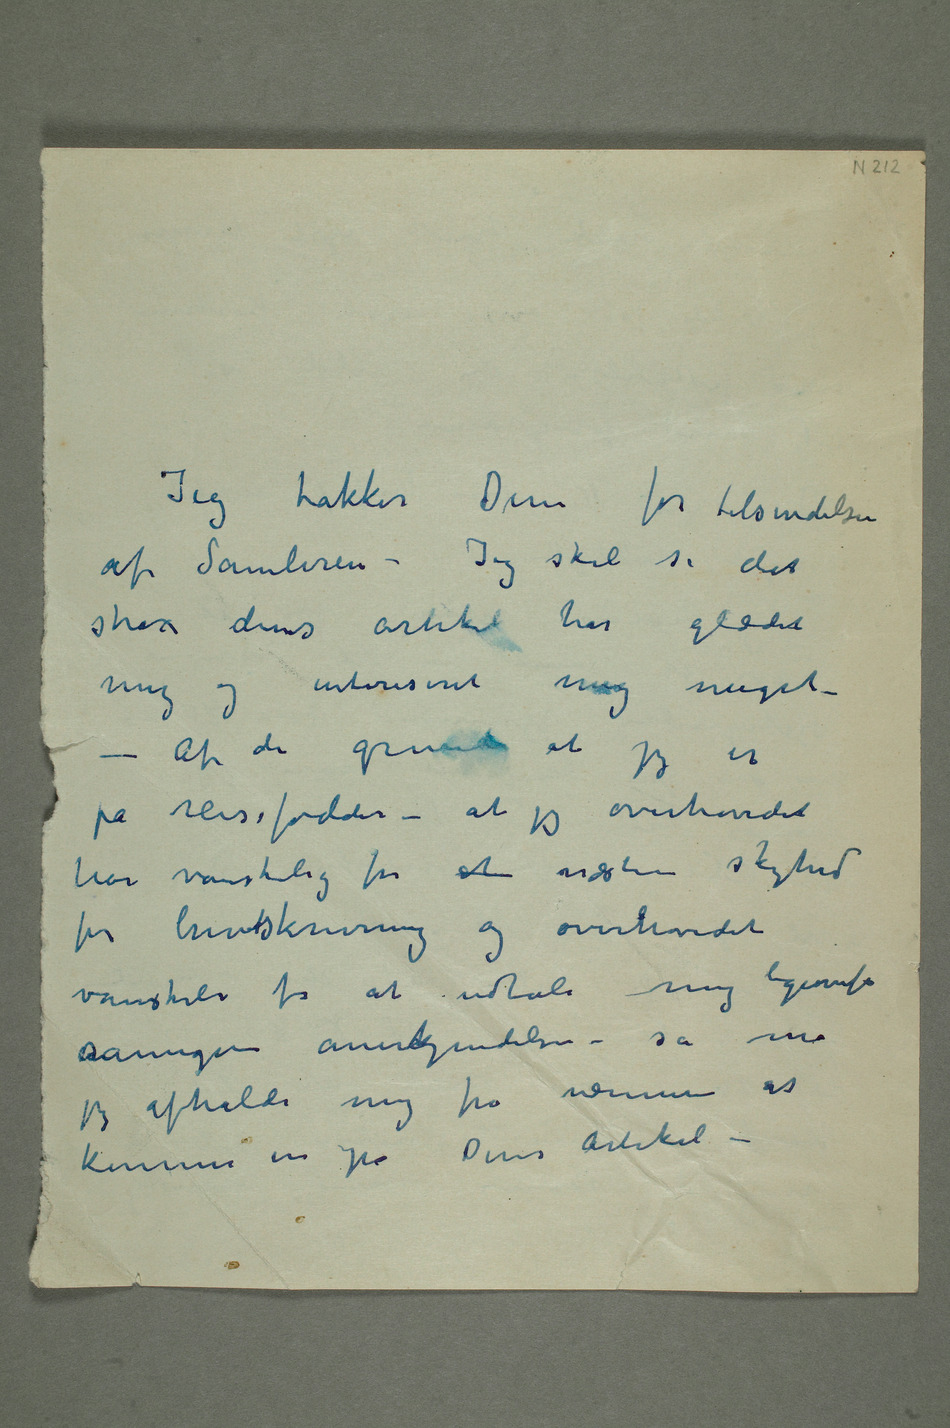 N 212
Jeg takker Dem for tilsendelsen
af Samleren – Jeg skal si det
strax deres artikel har glædet
mig og interesseret mig meget –
– Af de grunde at jeg er
på reisefødder – at jeg overhovedet
har vanskelig for næsten skyhed
for brevskrivning og overhovedet
vanskeli for at udtale mig ligeoverfor
anerkjendelse – så må
jeg afholde mig fra nærmere at
komme in på Deres Artikel –